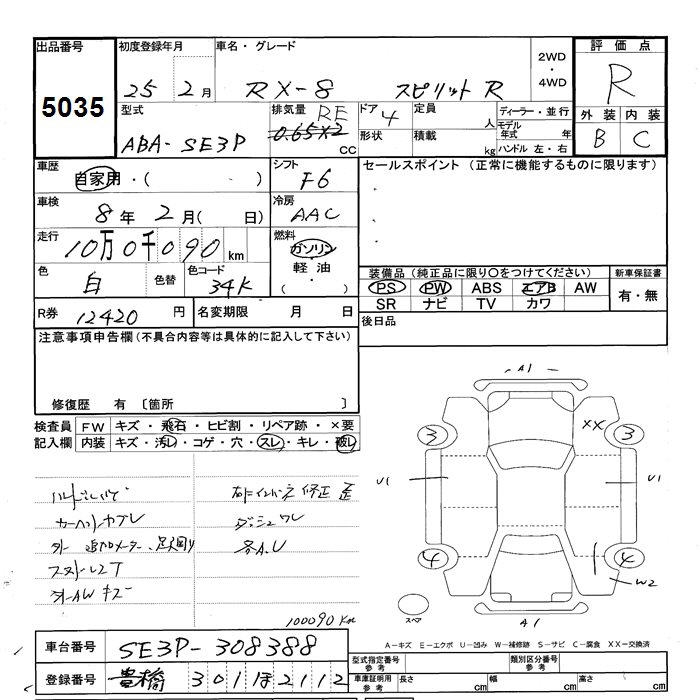 出品番号 初度登録年月 車名・グレード 評価点
5035 25 2月 RX-8 スピリットR 2WD・4WD R
型式 排気量 ドア 定員 ディーラー・並行 外装 内装
ABA-SE3P RE 0.65×2 cc 4 人 モデル年式 年 B C
形状 積載 kg ハンドル 左・右
車歴 シフト セールスポイント (正常に機能するものに限ります)
自家用・( ) F6
車検 冷房
8年 2月( 日) AAC
走行 燃料
10万0千090km ガソリン・軽油・( )
色 色替 色コード 装備品 (純正品に限り○をつけてください) 新車保証書
白 34K PS PW ABS エアB AW 有・無
SR ナビ TV カワ
R券 12420円 名変期限 月 日 後日品
注意事項申告欄(不具合内容等は具体的に記入して下さい)
修復歴 有 〔箇所 〕
検査員 FW キズ・飛石・ヒビ割・リペア跡・×要
記入欄 内装 キズ・汚レ・コゲ・穴・スレ・キレ・破レ
A1
××
3 3
U1 U1
4 4
W2
スペア A1
修正 歪
各A.U
外AWキズ
100090Km
A-キズ E-エクボ U-凹み W-補修跡 S-サビ C-腐食 XX-交換済
車台番号 SE3P-308388 型式指定番号 参考 類別区分番号 参考
登録番号 豊橋 301 ほ 2112 車庫証明用 参考 長さ cm 幅 cm 高さ cm